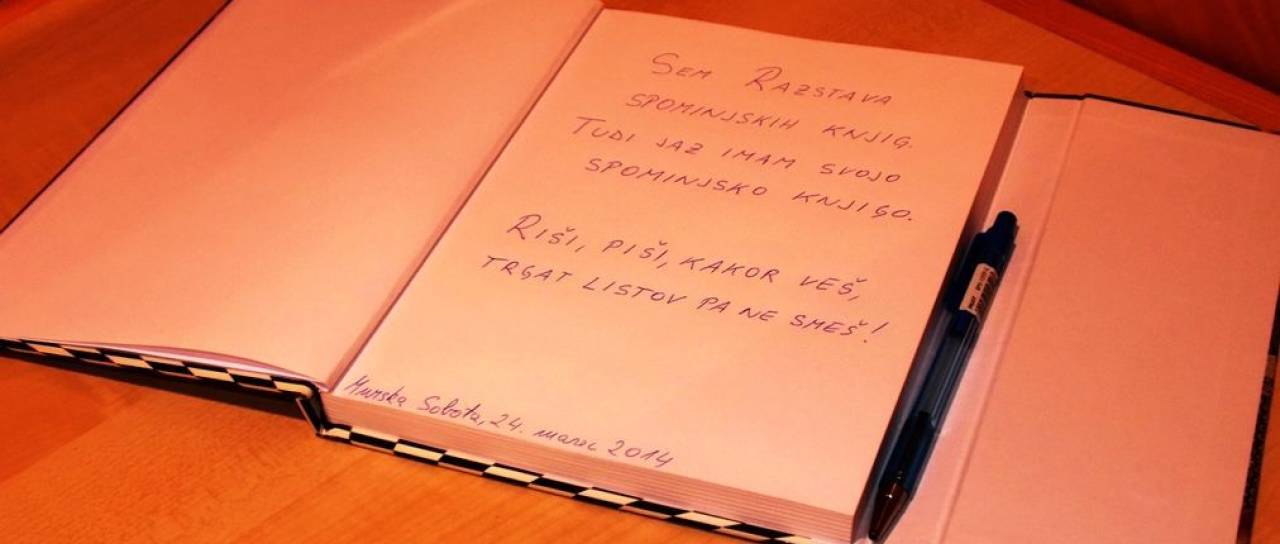 SEM RAZSTAVA
SPOMINJSKIH KNJIG.
TUDI JAZ IMAM SVOJO
SPOMINJSKO KNJIGO.
RIŠI, PIŠI, KAKOR VEŠ,
TRGAT LISTOV PA NE SMEŠ!
Murska Sobota, 24. marec 2014